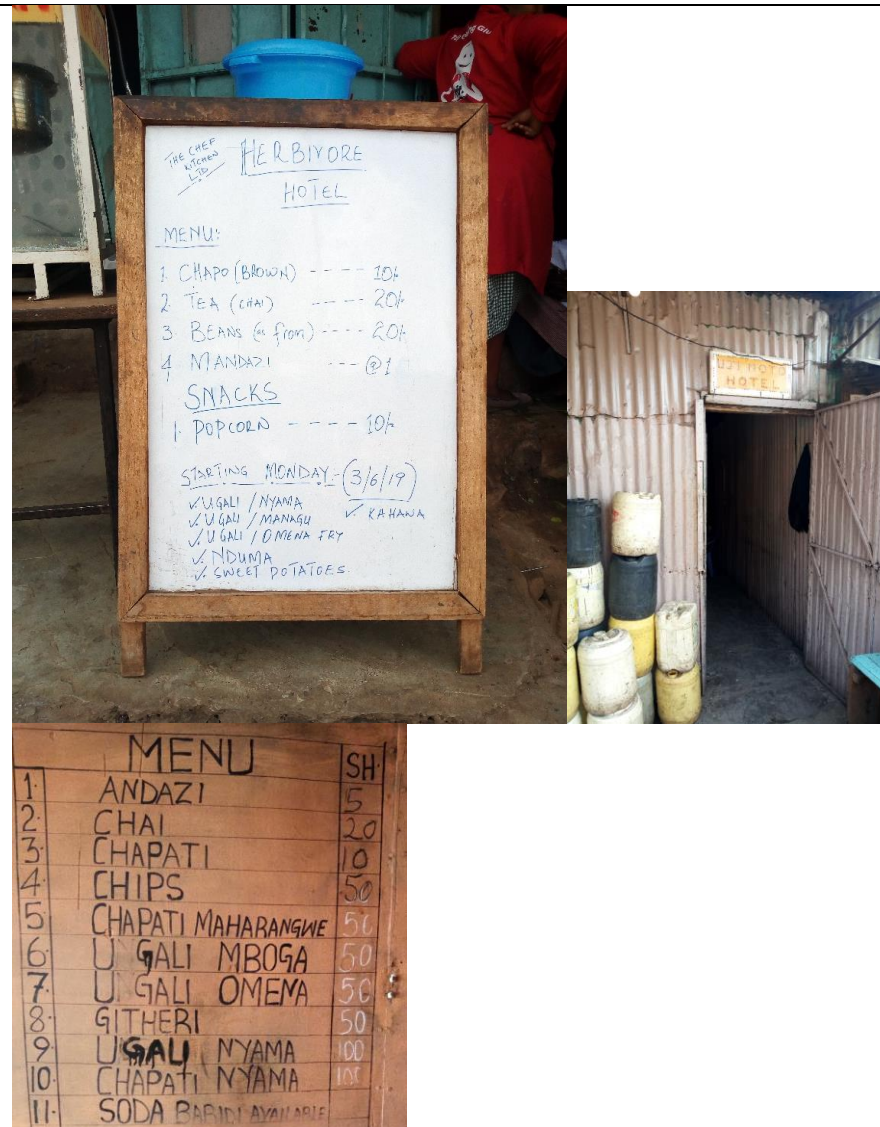 THE CHEF
KITCHEN
LTD
HERBIVORE
HOTEL
MENU:
1. CHAPO (BROWN) ---- 10/-
2. TEA (CHAI) ---- 20/-
3. BEANS (as from) ---- 20/-
4. MANDAZI --- @1
SNACKS
1. POPCORN ---- 10/-
STARTING MONDAY:- (3/6/19)
✓ UGALI / NYAMA
✓ KAHAWA
✓ UGALI / MANAGU
✓ UGALI / OMENA FRY
✓ NDUMA
✓ SWEET POTATOES
UJI MOTO
HOTEL
MENU SH
1. ANDAZI 5
2. CHAI 20
3. CHAPATI 10
4. CHIPS 50
5. CHAPATI MAHARANGWE 50
6. UGALI MBOGA 50
7. UGALI OMENA 50
8. GITHERI 50
9. UGALI NYAMA 100
10. CHAPATI NYAMA 100
11. SODA BARIDI AVAILABLE